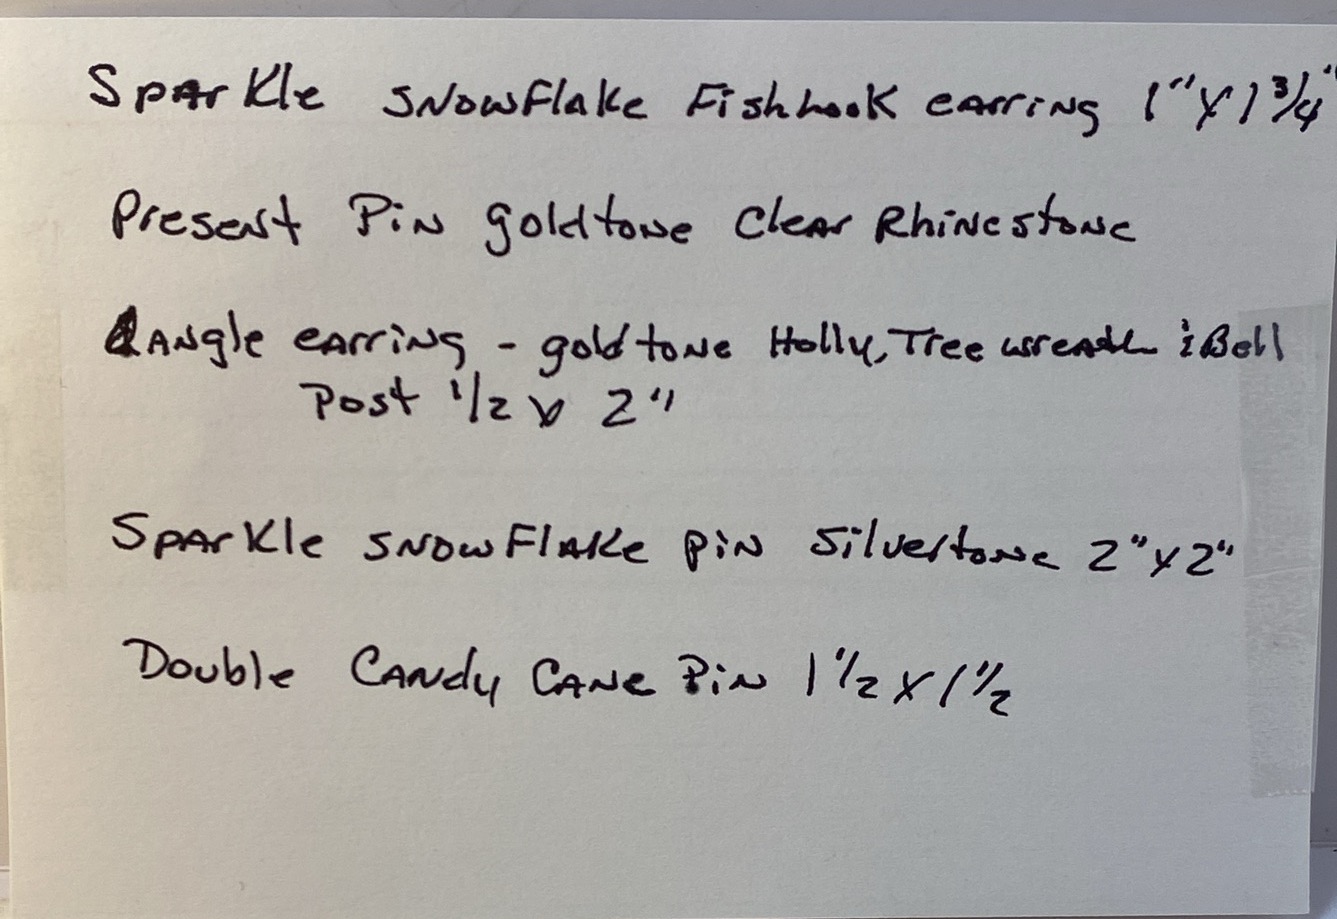 Sparkle snowflake Fishhook earring 1" x 1 3/4"
Present Pin goldtone Clear Rhinestone
dangle earring - goldtone Holly, Tree wreath & Bell
Post 1/2 x 2"
Sparkle snowflake pin silvertone 2" x 2"
Double Candy Cane Pin 1 1/2 x 1 1/2